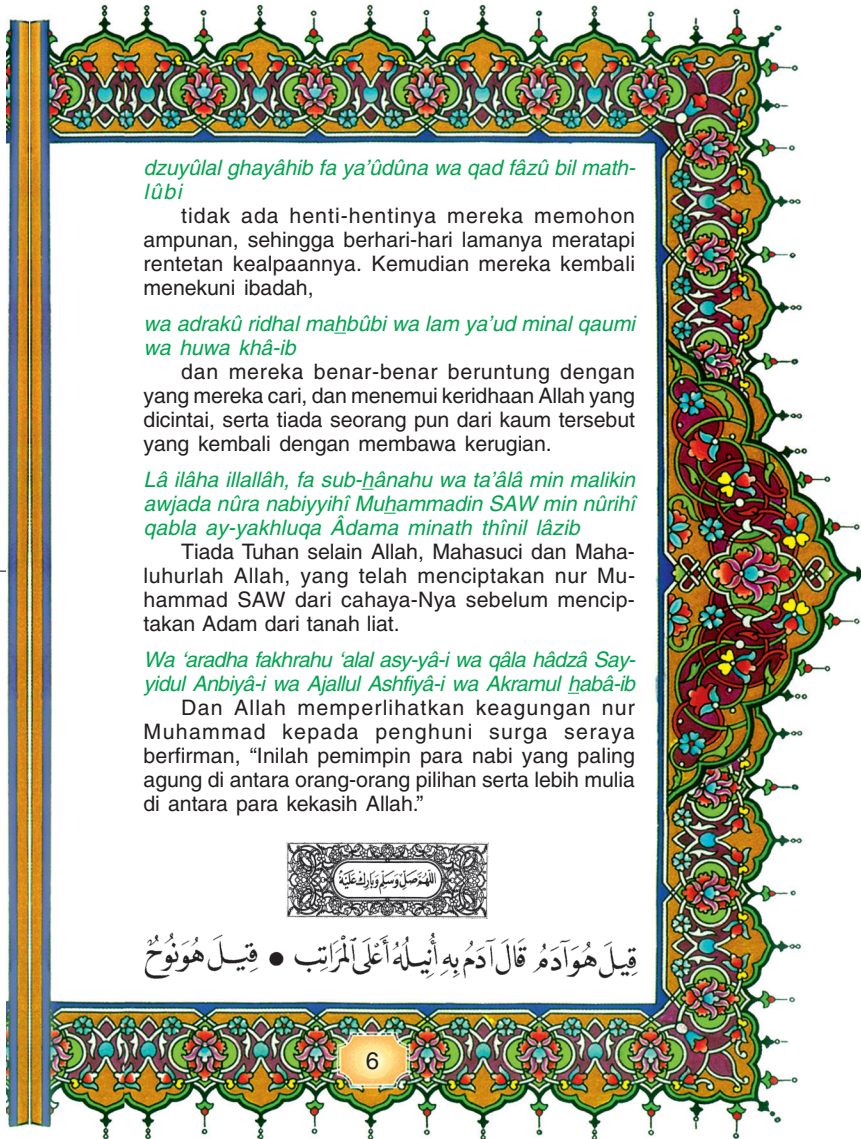 dzuyûlal ghayâhib fa ya’ûdûna wa qad fâzû bil math-
lûbi
tidak ada henti-hentinya mereka memohon
ampunan, sehingga berhari-hari lamanya meratapi
rentetan kealpaannya. Kemudian mereka kembali
menekuni ibadah,
wa adrakû ridhal mahbûbi wa lam ya’ud minal qaumi
wa huwa khâ-ib
dan mereka benar-benar beruntung dengan
yang mereka cari, dan menemui keridhaan Allah yang
dicintai, serta tiada seorang pun dari kaum tersebut
yang kembali dengan membawa kerugian.
Lâ ilâha illallâh, fa sub-hânahu wa ta’âlâ min malikin
awjada nûra nabiyyihî Muhammadin SAW min nûrihî
qabla ay-yakhluqa Âdama minath thînil lâzib
Tiada Tuhan selain Allah, Mahasuci dan Maha-
luhurlah Allah, yang telah menciptakan nur Mu-
hammad SAW dari cahaya-Nya sebelum mencip-
takan Adam dari tanah liat.
Wa ‘aradha fakhrahu ‘alal asy-yâ-i wa qâla hâdzâ Say-
yidul Anbiyâ-i wa Ajallul Ashfiyâ-i wa Akramul habâ-ib
Dan Allah memperlihatkan keagungan nur
Muhammad kepada penghuni surga seraya
berfirman, “Inilah pemimpin para nabi yang paling
agung di antara orang-orang pilihan serta lebih mulia
di antara para kekasih Allah.”
اللهم صل وسلم وبارك عليه
قِيلَ هُوَ آدَمُ قَالَ آدَمُ بِهِ أُنِيلُهُ أَعْلَى ٱلْمَرَاتِب ● قِيلَ هُوَ نُوحٌ
6